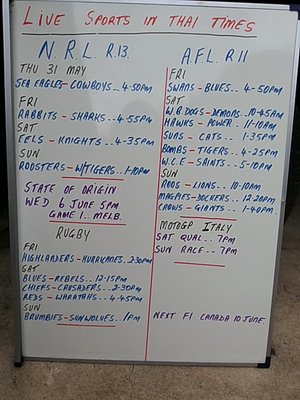 LIVE SPORTS IN THAI TIMES
N.R.L. R13.
THU 31 MAY
SEA EAGLES - COWBOYS.. 4-50PM
FRI
RABBITS - SHARKS.. 4-55PM
SAT
EELS - KNIGHTS.. 4-35PM
SUN
ROOSTERS - W/TIGERS... 1-10PM
STATE OF ORIGIN
WED 6 JUNE 5PM
GAME 1. MELB.
RUGBY
FRI
HIGHLANDERS - HURRICANES. 2-30PM
SAT
BLUES - REBELS.. 12-15PM
CHIEFS - CRUSADERS.. 2-30PM
REDS - WARATAHS.. 4-45PM
SUN
BRUMBIES - SUNWOLVES.. 1PM
A.F.L. R11
FRI
SWANS - BLUES.. 4-50PM
SAT
W.B.DOGS - DEMONS. 10-45AM
HAWKS - POWER. 11-10AM
SUNS - CATS... 1-35PM
BOMBS - TIGERS.. 4-25PM
W.C.E - SAINTS.. 5-10PM
SUN
ROOS - LIONS.. 10-10AM
MAGPIES - DOCKERS.. 12.20PM
CROWS - GIANTS.. 1-40PM.
MOTOGP ITALY
SAT QUAL.. 7PM
SUN RACE.. 7PM
NEXT F1 CANADA 10 JUNE.